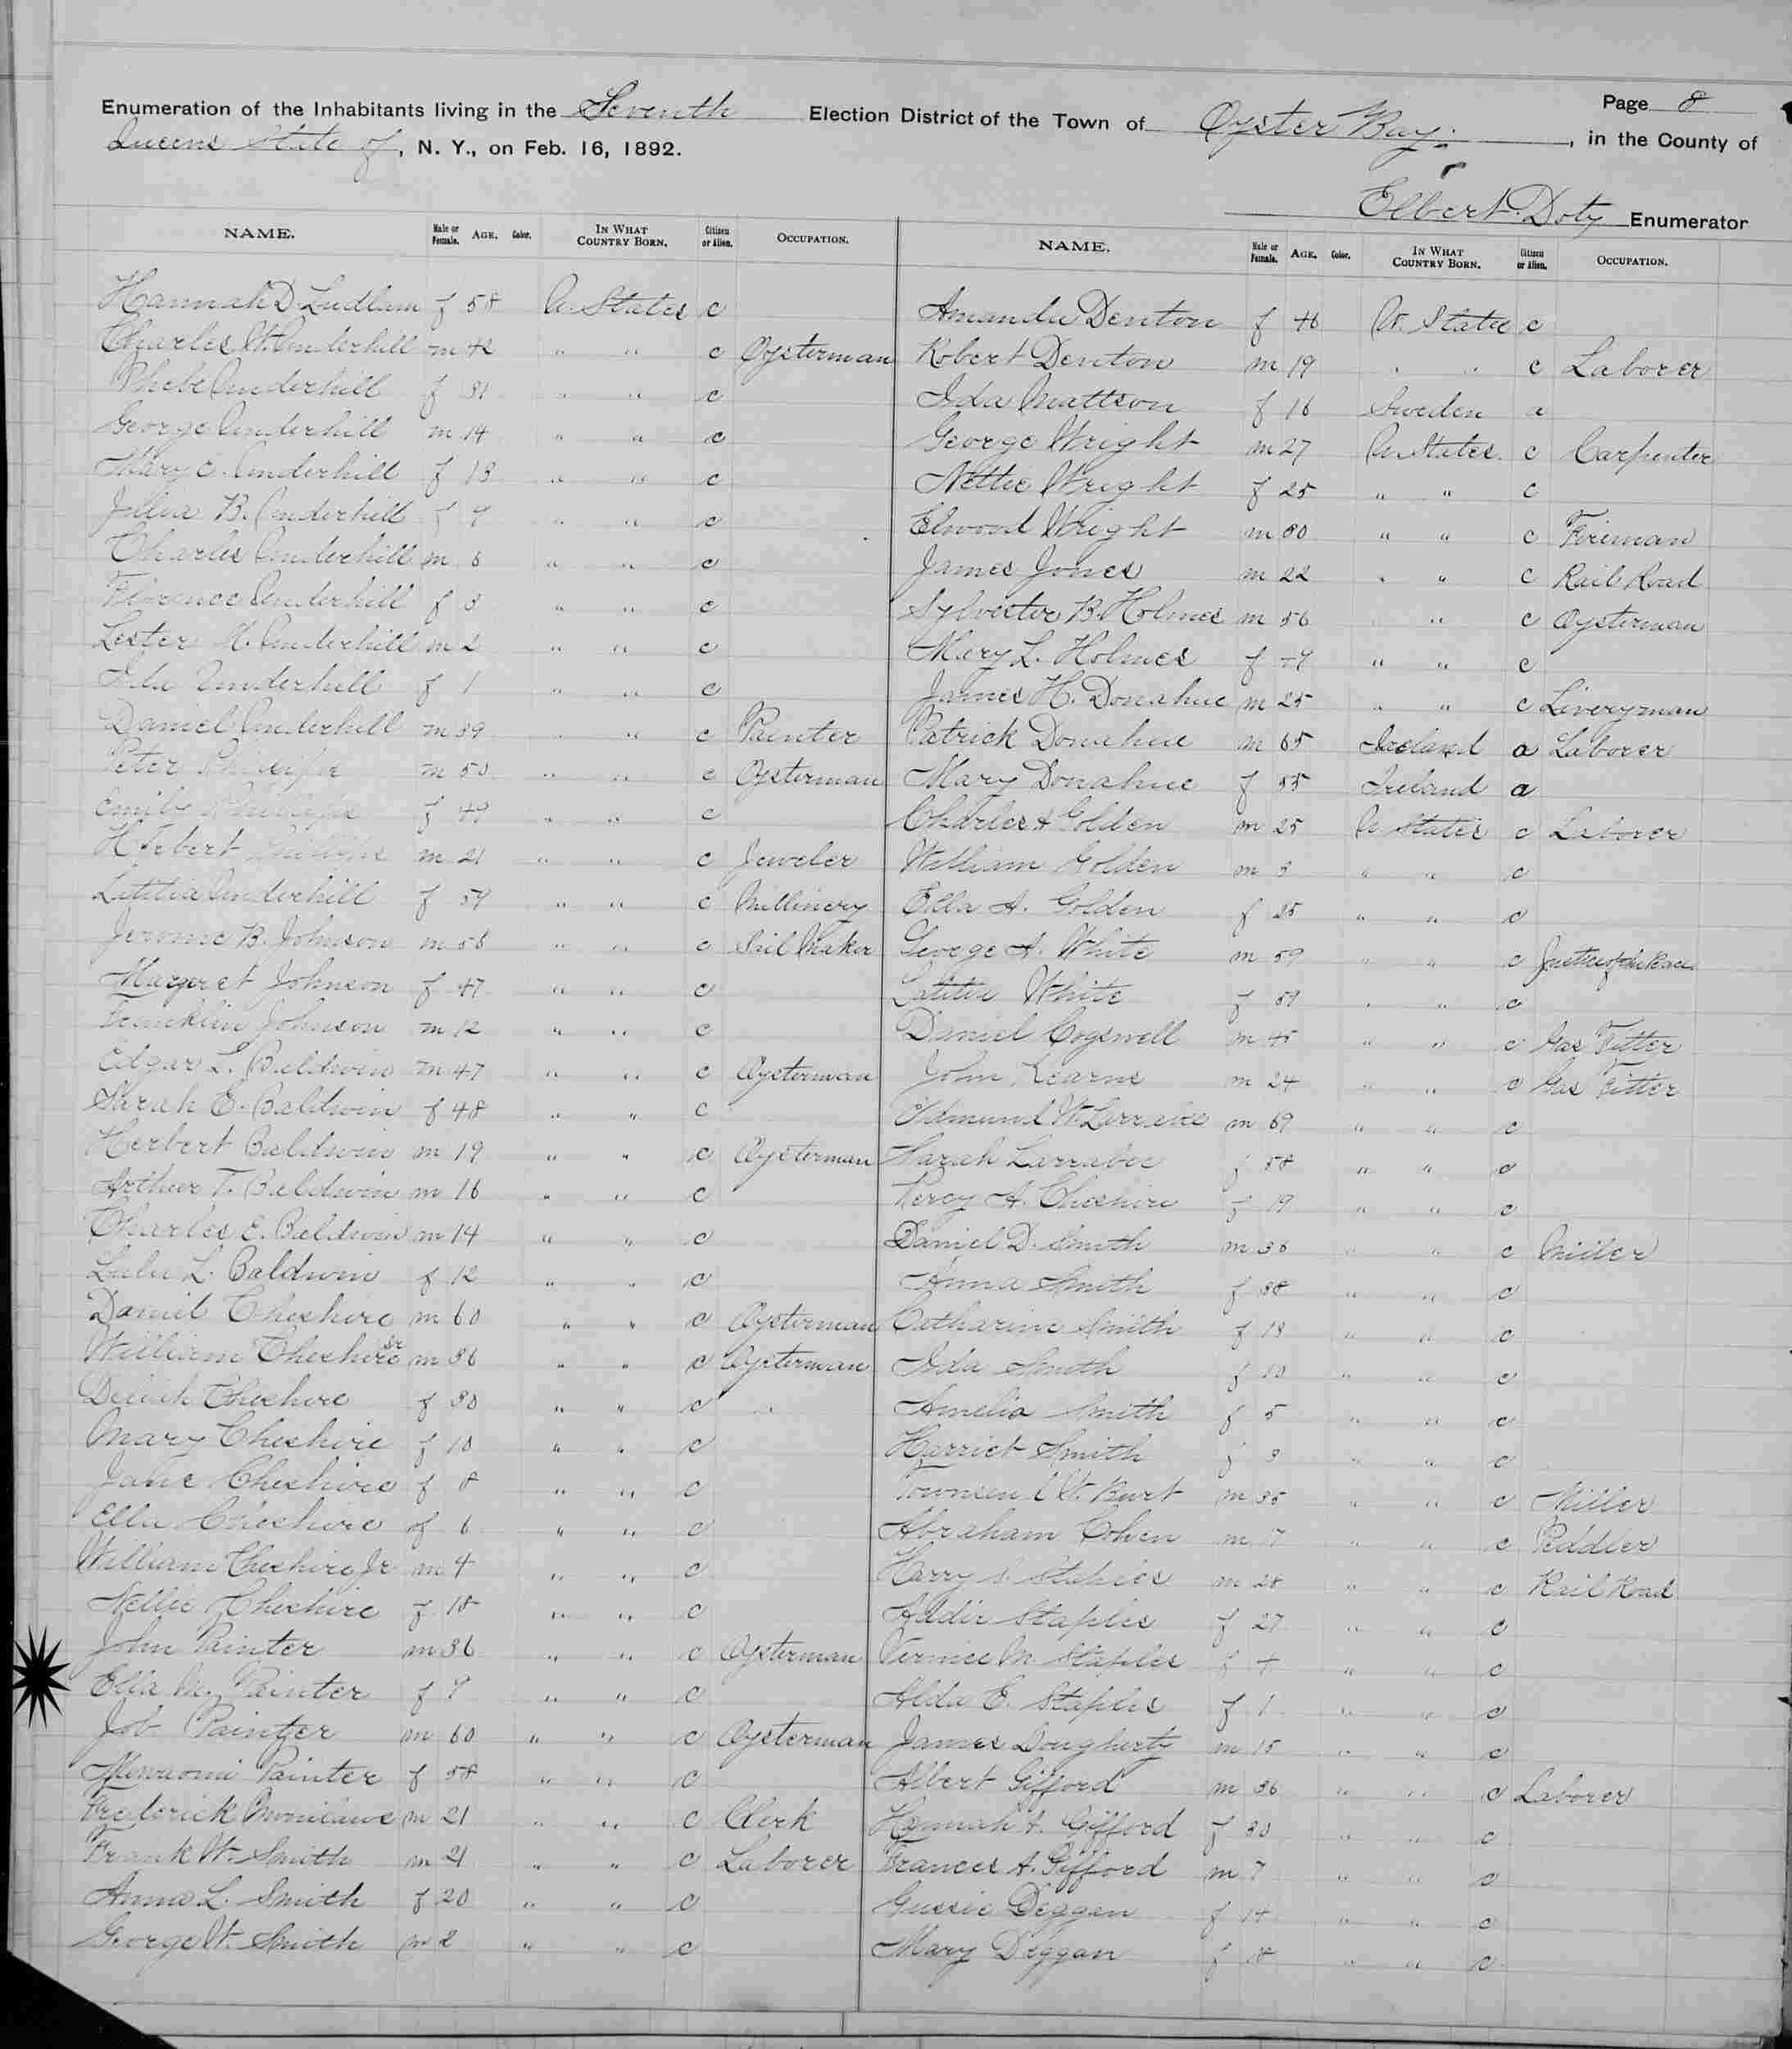 Enumeration of the Inhabitants living in the Seventh Election District of the Town of Oyster Bay, in the County of
Page 8
Queens State of, N. Y., on Feb. 16, 1892.
Elbert Doty Enumerator
NAME. Male or Female. AGE. Color. IN WHAT COUNTRY BORN. Citizen or Alien. OCCUPATION.
Hannah D. Ludlam f 58 U. States c
Charles W. Underhill m 42 " " c Oysterman
Phebe Underhill f 31 " " c
George Underhill m 14 " " c
Mary E. Underhill f 13 " " c
Julia B. Underhill f 9 " " c
Charles Underhill m 6 " " c
Florence Underhill f 3 " " c
Lester H. Underhill m 2 " " c
Underhill f 1 " " c
Daniel Underhill m 39 " " c Painter
Peter m 50 " " c Oysterman
Emily f 49 " " c
m 21 " " c Jeweler
Letitia Underhill f 59 " " c Millinery
Jerome B. Johnson m 56 " " c Sail Maker
Margret Johnson f 47 " " c
Franklin Johnson m 12 " " c
Edgar L. Baldwin m 47 " " c Oysterman
Sarah E. Baldwin f 48 " " c
Herbert Baldwin m 19 " " c Oysterman
Arthur T. Baldwin m 16 " " c
Charles E. Baldwin m 14 " " c
Lulu L. Baldwin f 12 " " c
Daniel Cheshire m 60 " " c Oysterman
William Cheshire Sr m 36 " " c Oysterman
Cheshire f 30 " " c
Mary Cheshire f 10 " " c
Jane Cheshire f 8 " " c
Ella Cheshire f 6 " " c
William Cheshire Jr m 4 " " c
Nellie Cheshire f 18 " " c
John Painter m 36 " " c Oysterman
Ella M. Painter f 9 " " c
Job Painter m 60 " " c Oysterman
Painter f 58 " " c
Frederick m 21 " " c Clerk
Frank W. Smith m 21 " " c Laborer
Anna L. Smith f 20 " " c
George W. Smith m 2 " " c
NAME. Male or Female. AGE. Color. IN WHAT COUNTRY BORN. Citizen or Alien. OCCUPATION.
Amanda Denton f 46 U. States c
Robert Denton m 19 " " c Laborer
Ida Mattson f 16 Sweden a
George Wright m 27 U. States c Carpenter
Nettie Wright f 25 " " c
Elwood Wright m 30 " " c Fireman
James Jones m 22 " " c Rail Road
Sylvester B. Holmes m 56 " " c Oysterman
Mary L. Holmes f 49 " " c
James H. Donahue m 25 " " c Liveryman
Patrick Donahue m 65 Ireland a Laborer
Mary Donahue f 55 Ireland a
Charles A Golden m 25 U States c Laborer
William Golden m 3 " " c
Ella A. Golden f 25 " " c
George A. White m 59 " " c Justice of the Peace
Letitia White f 59 " " c
Daniel Cogswell m 45 " " c Gas Fitter
John Kearns m 24 " " c Gas Fitter
Edmund W. Larrabee m 69 " " c
Sarah Larrabee f 58 " " c
Percy A. Cheshire f 19 " " c
Daniel D. Smith m 36 " " c Miller
Anna Smith f 38 " " c
Catharine Smith f 13 " " c
Ida Smith f 10 " " c
Amelia Smith f 5 " " c
Harriet Smith f 3 " " c
Townsend W. Burt m 35 " " c Miller
Abraham Cohen m 17 " " c Peddler
Harry S. Staples m 28 " " c Rail Road
Addie Staples f 27 " " c
Vernice M Staples f 4 " " c
Alda E. Staples f 1 " " c
James Dougherty m 15 " " c
Albert Gifford m 36 " " c Laborer
Hannah A. Gifford f 30 " " c
Frances A. Gifford m 7 " " c
Gussie Deggan f 14 " " c
Mary Deggan f 18 " " c